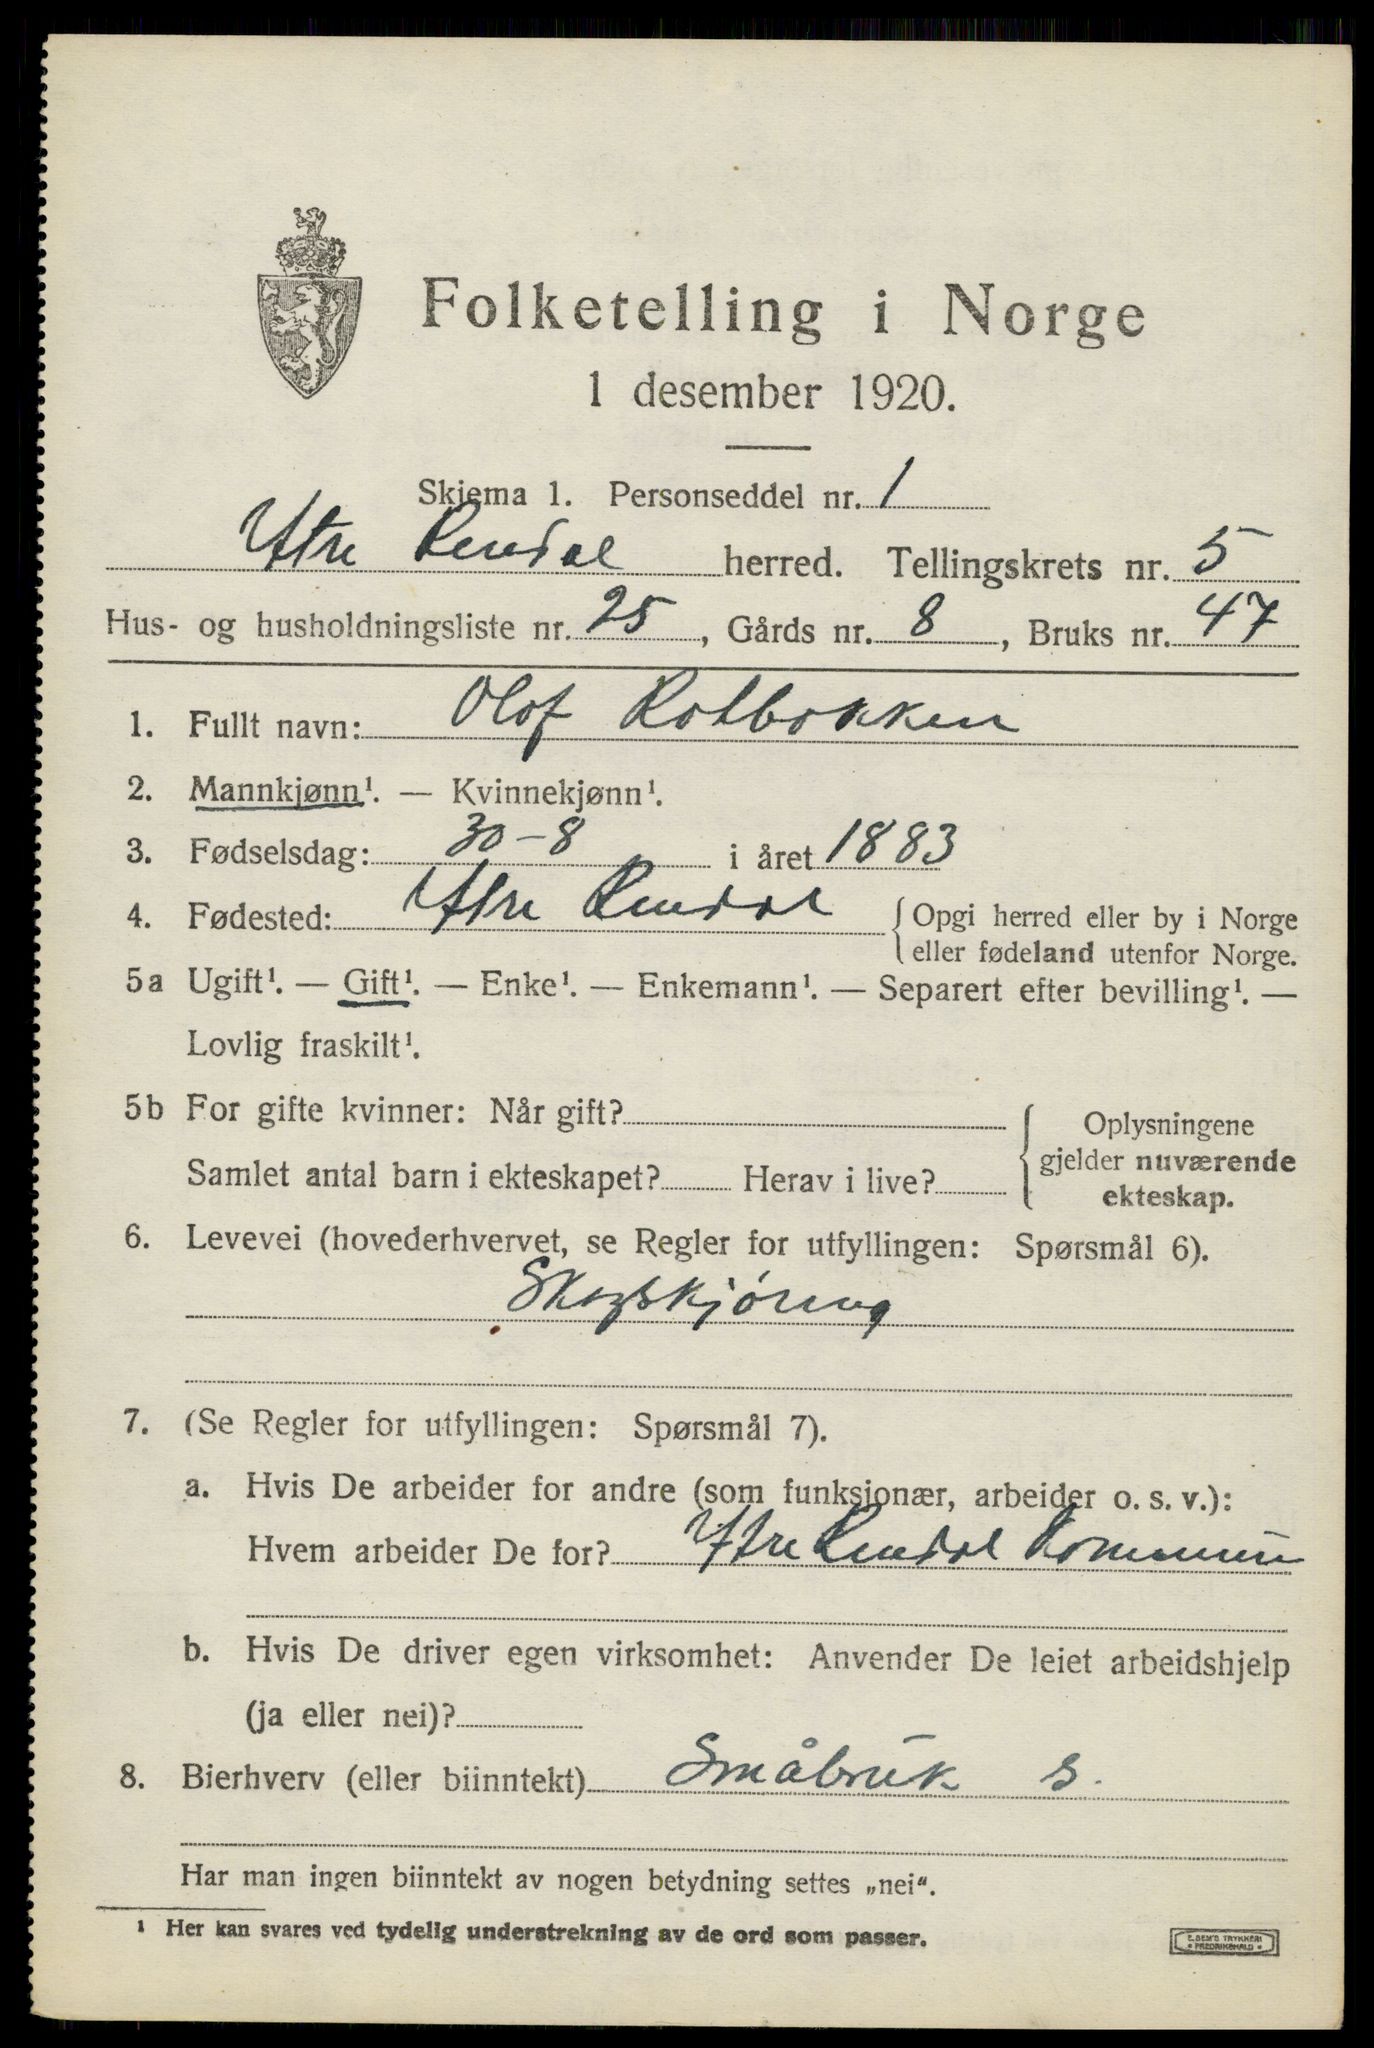 Folketelling i Norge
1 desember 1920.
Skjema 1. Personseddel nr. 1
Ytre Rendal herred. Tellingskrets nr. 5
Hus- og husholdningsliste nr. 25, Gårds nr. 8, Bruks nr. 47
1. Fullt navn: Olof Rotbakken
2. Mannkjønn¹. — Kvinnekjønn¹.
3. Fødselsdag: 30-8 i året 1883
4. Fødested: Ytre Rendal { Opgi herred eller by i Norge
eller fødeland utenfor Norge.
5a Ugift¹. — Gift¹. — Enke¹. — Enkemann¹. — Separert efter bevilling¹. —
Lovlig fraskilt¹.
5b For gifte kvinner: Når gift? { Oplysningene
gjelder nuværende
Samlet antal barn i ekteskapet? Herav i live? ekteskap.
6. Levevei (hovederhvervet, se Regler for utfyllingen: Spørsmål 6).
Skogskjöring
7. (Se Regler for utfyllingen: Spørsmål 7).
a. Hvis De arbeider for andre (som funksjonær, arbeider o. s. v.):
Hvem arbeider De for? Ytre Rendal Kommune
b. Hvis De driver egen virksomhet: Anvender De leiet arbeidshjelp
(ja eller nei)?
8. Bierhverv (eller biinntekt) Småbruk s.
Har man ingen biinntekt av nogen betydning settes „nei“.
¹ Her kan svares ved tydelig understrekning av de ord som passer.
E. SEM'S TRYKKERI
• FREDRIKSHALD •